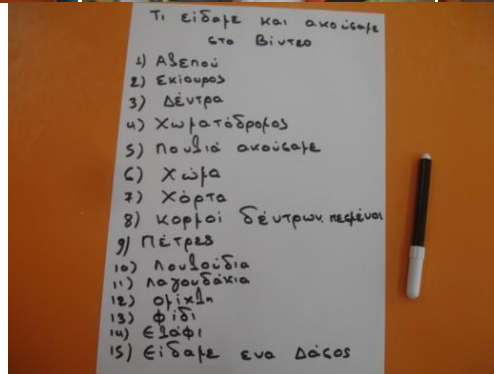 Τι είδαμε και ακούσαμε
στο Βίντεο
1) Αλεπού
2) Σκίουρος
3) Δέντρα
4) Χωματόδρομος
5) Πουλιά ακούσαμε
6) Χώμα
7) Χόρτα
8) Κορμοί δέντρων πεσμένοι
9) Πέτρες
10) Λουλούδια
11) Λαγουδάκια
12) Ομίχλη
13) Φίδι
14) Ελάφι
15) Είδαμε ενα Δάσος